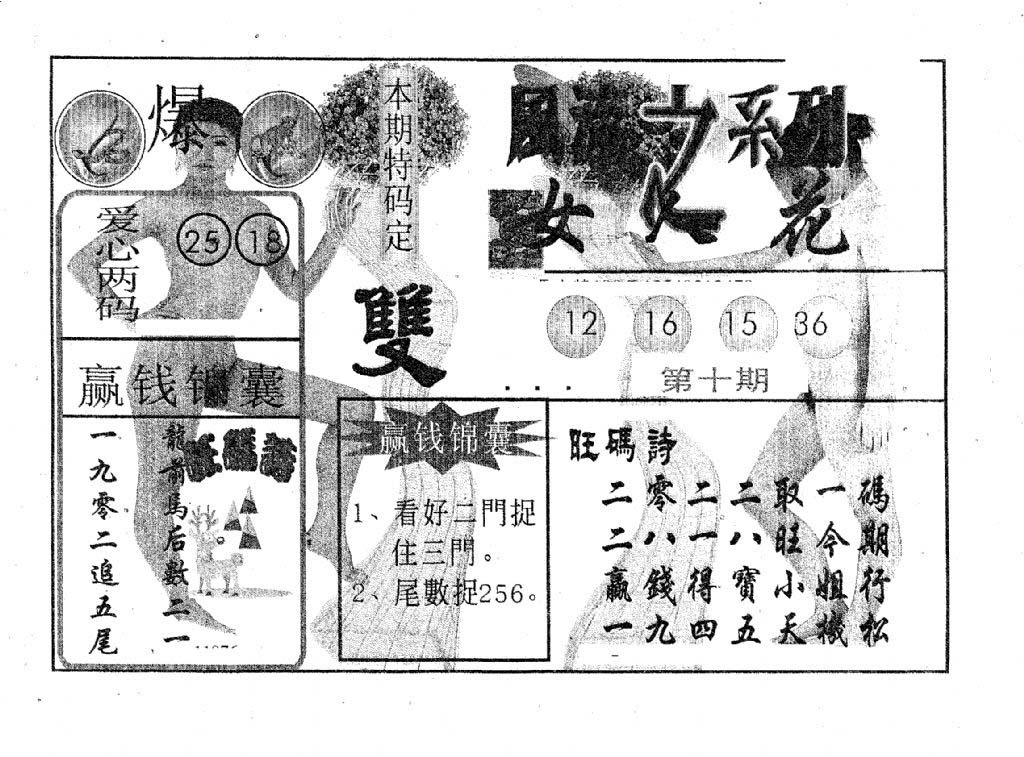 爆
爱心两码
25 18
赢钱锦囊
龍前馬后數二一
一九零二追五尾
本期特码定
雙
赢钱锦囊
1、看好二門捉
住三門。
2、尾數捉256。
系列
女人花
12 16 15 36
第十期
旺碼詩
二零二二取一碼
二八一八旺今期
贏錢得寶小姐行
一九四五天機松